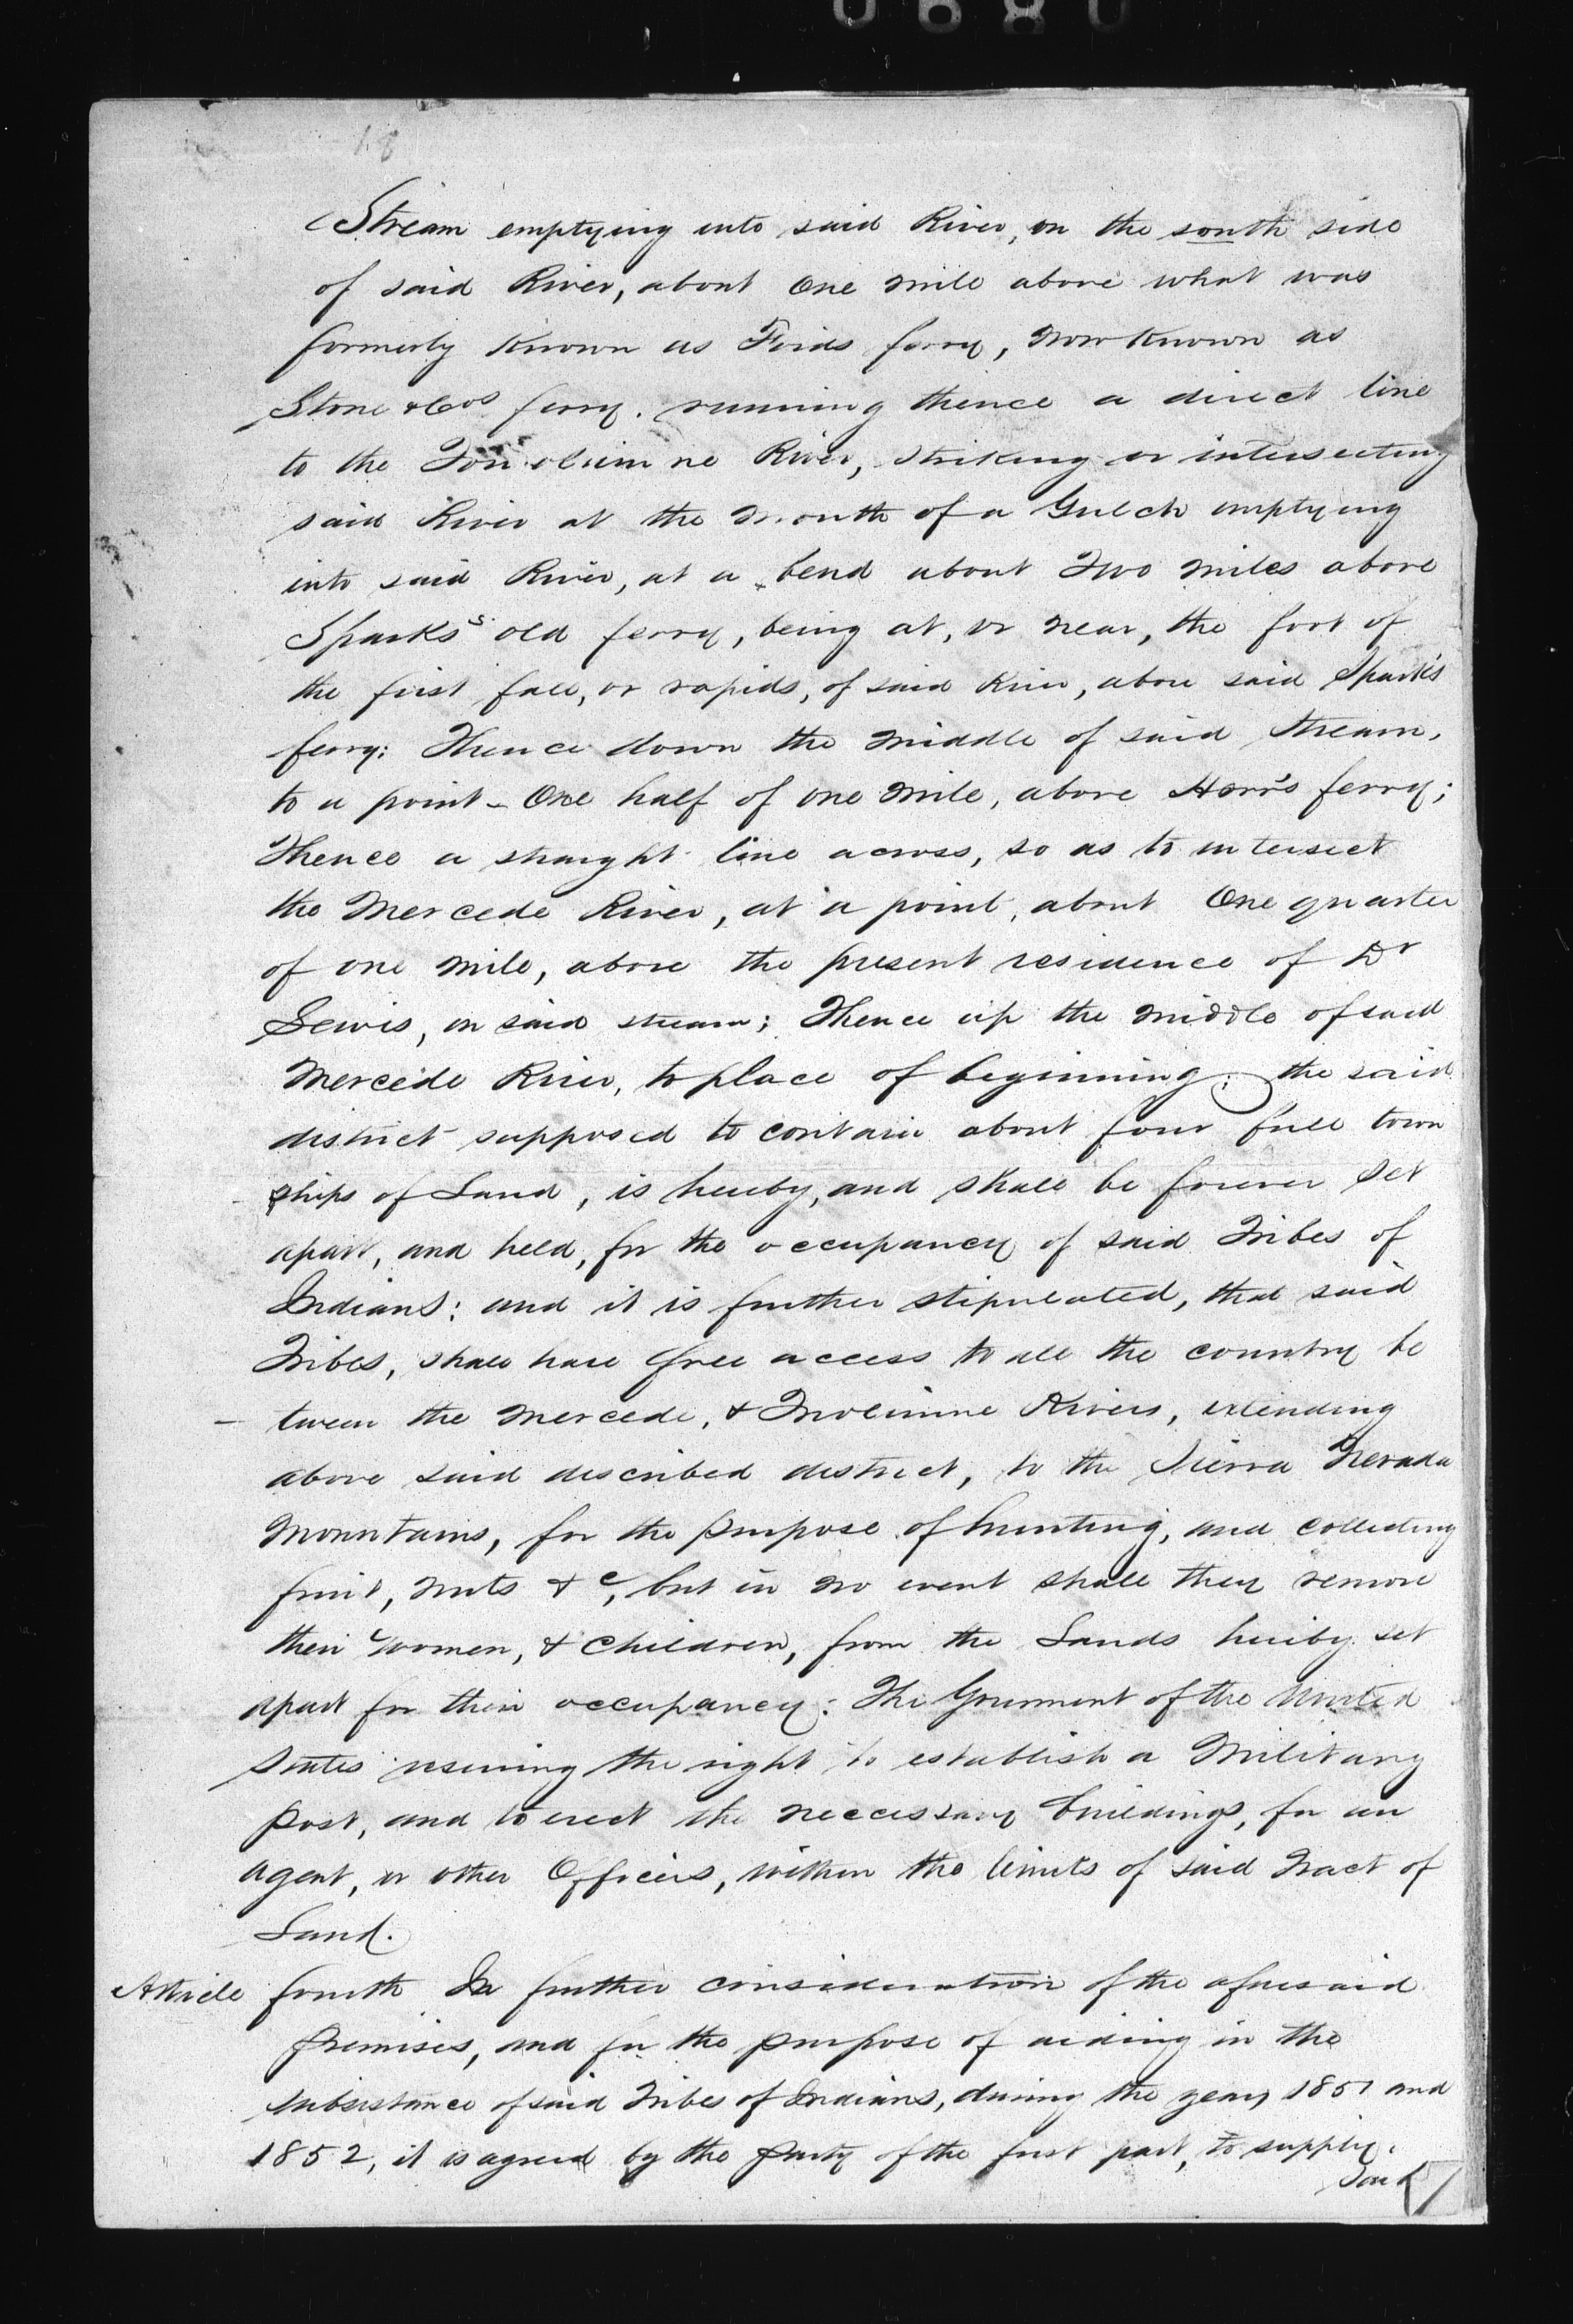 0680
18
Stream emptying into said River, on the south side
of said River, about One mile above what was
formerly Known as Fords ferry, now Known as
Stone & Cos ferry. running thence a direct line
to the Touolumne River, striking or intersecting
said River at the mouth of a Gulch emptying
into said River, at a bend about Two miles above
Sparks's old ferry, being at, or near, the foot of
the first fall, or rapids, of said River, above said Spark's
ferry: Thence down the middle of said stream,
to a point - One half of one mile, above Harr's ferry;
Thence a straight line across, so as to intersect
the Mercede River, at a point, about One quarter
of one mile, above the present residence of Dr
Lewis, on said stream; Thence up the middle of said
Mercede River, to place of beginning; the said
district supposed to contain about four full town
ships of Land, is hereby, and shall be forever set
apart, and held, for the occupancy of said Tribes of
Indians: and it is further stipulated, that said
Tribes, shall have free access to all the country be
- tween the Mercede, & Tuolumne Rivers, extending
above said described district, to the Sierra Nevada
Mountains, for the purpose of hunting, and collecting
fruit, nuts &c, but in no event shall they remove
their women, & children, from the Lands hereby set
apart for their occupancy: The Government of the United
States reserving the right to establish a Military
post, and to erect the neccessary buildings, for an
agent, or other Officers, within the limits of said Tract of
Land.
Article fourth In further consideration of the aforesaid
premises, and for the purpose of aiding in the
subsistance of said Tribes of Indians, during the years 1851 and
1852, it is agreed by the party of the first part, to supply
said